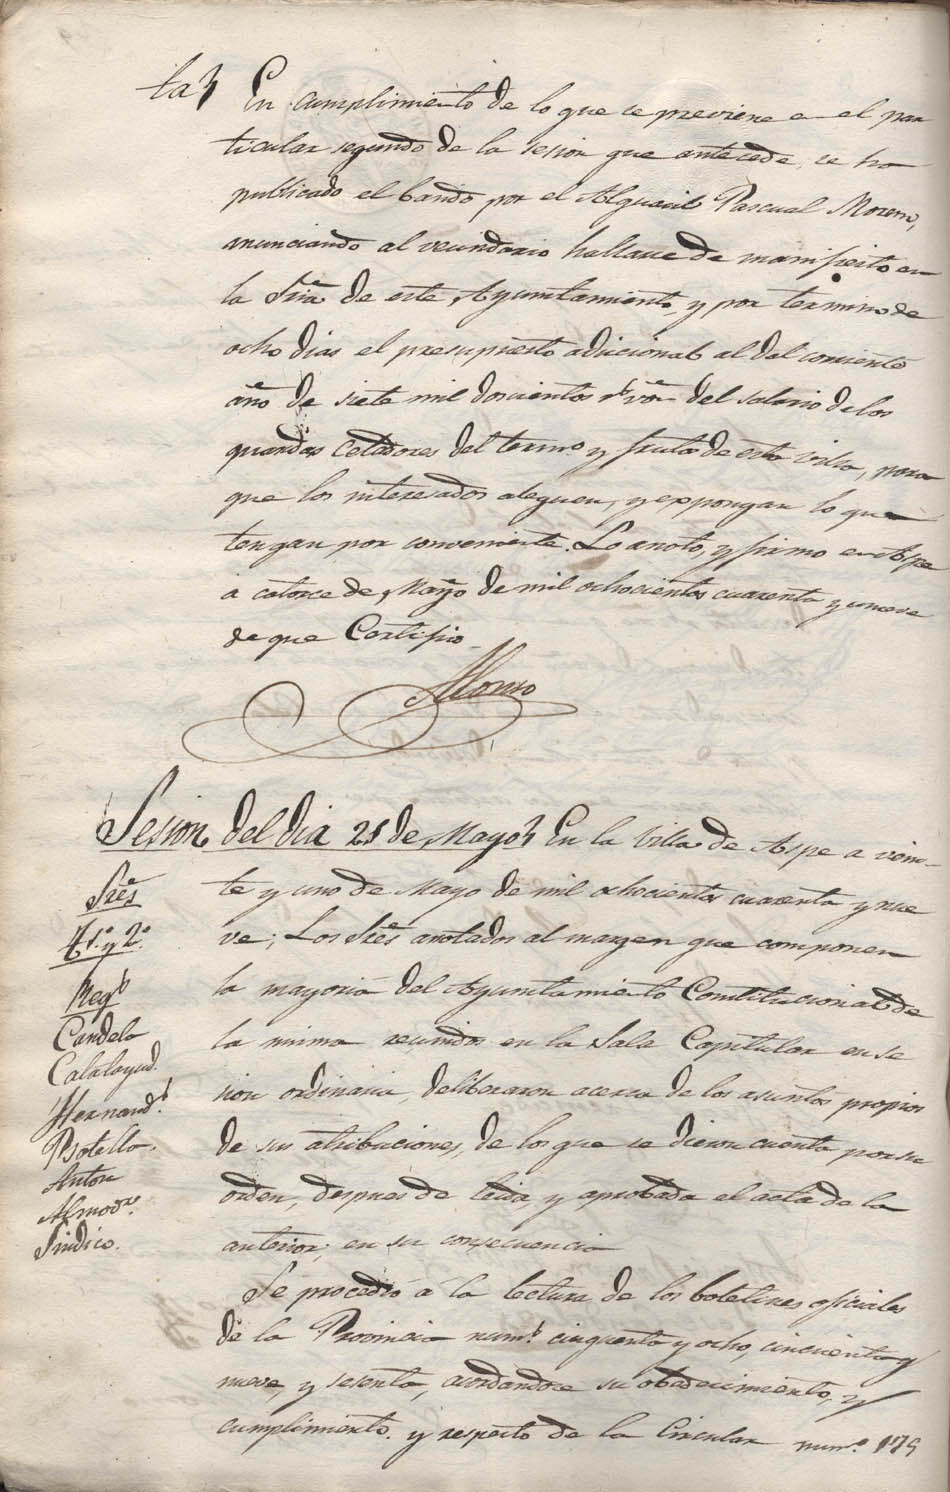 ta} En cumplimiento de lo que se previene en el par
ticular segundo de la sesion que antecede, se ha
publicado el bando por el Alguacil Pascual Moreno,
anunciando al vecindario hallarse de manifiesto en
la Sria de este Ayuntamiento, y por termino de
ocho dias el presupuesto adiccional al del corriente
año de siete mil doscientos rs von del salario de los
guardas Celadores del termo y frutos de esta villa, para
que los interesados aleguen, y expongan lo que
tengan por conveniente. Lo anoto, y firmo en Aspe
a catorce de Mayo de mil ochocientos cuarenta y nueve
de que Certifio
Alonso
Sesion del dia 21 de Mayo} En la Villa de Aspe a vein-
te y uno de Mayo de mil ochocientos cuarenta y nue
ve; Los Sres anotados al margen que componen
la mayoria del Ayuntamiento Constitucional de
la misma reunidos en la Sala Capitular en se
sion ordinaria, deliberaron acerca de los asuntos propios
de sus atribuciones, de los que se dieron cuenta por su
orden, despues de leida, y aprobada el acta de la
anterior; en su consecuencia
Sres
1º y 2º
Regs
Candela
Calatayud.
Hernands
Botella.
Anton
Almodr.
Sindico.
Se procedió á la lectura de los boletines oficiales
de la Provincia nums cinquenta y ocho, cincuenta y
nueve, y sesenta, acordandose su obedecimiento, y
cumplimiento. y respecto de la Circular numo 179